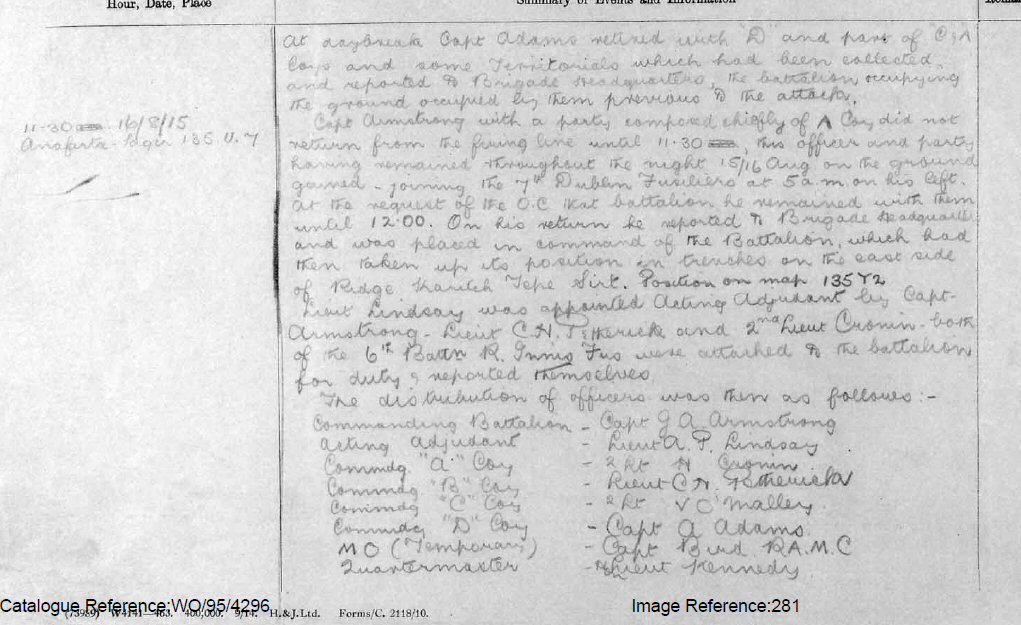 Hour, Date, Place
Summary of Events and Information
At daybreak Capt Adams retired with "D" and part of "C", A
Coys and some Territorials which had been collected,
and reported to Brigade Headquarters, the battalion occupying
the ground occupied by them previous to the attack.
11-30 16/8/15
Anafarta - Sagir 135 U.7
Capt Armstrong with a party composed chiefly of A Coy did not
return from the firing line until 11-30, this officer and party
having remained throughout the night 15/16 Aug on the ground
gained - joining the 7th Dublin Fusiliers at 5 a.m. on his left.
At the request of the O.C that battalion he remained with them
until 12.00. On his return he reported to Brigade Headquarters
and was placed in command of the Battalion, which had
then taken up its position in trenches on the east side
of Ridge Karitch Tepe Sirt. Position on map 135 Y2
Lieut Lindsay was appointed Acting Adjudant by Capt-
Armstrong - Lieut C.H. Petherick and 2nd Lieut Cronin - both
of the 6th Battn R. Innis Fus were attached to the battalion
for duty & reported themselves.
The distribution of officers was then as follows :-
Commanding Battalion - Capt G A Armstrong
Acting Adjudant - Lieut A. P. Lindsay
Commdg. "A" Coy - 2 Lt H Cronin
Commdg. "B" Coy - Lieut C H. Petherick
Commdg "C" Coy - 2 Lt V O'Malley.
Commdg "D" Coy - Capt A Adams
M O (Temporary) - Capt Bird R.A.M.C
Quartermaster - Lieut Kennedy
Catalogue Reference:WO/95/4296
Image Reference:281
(73989) W4141—463. 400,000. 9/14. H.&J.Ltd. Forms/C. 2118/10.